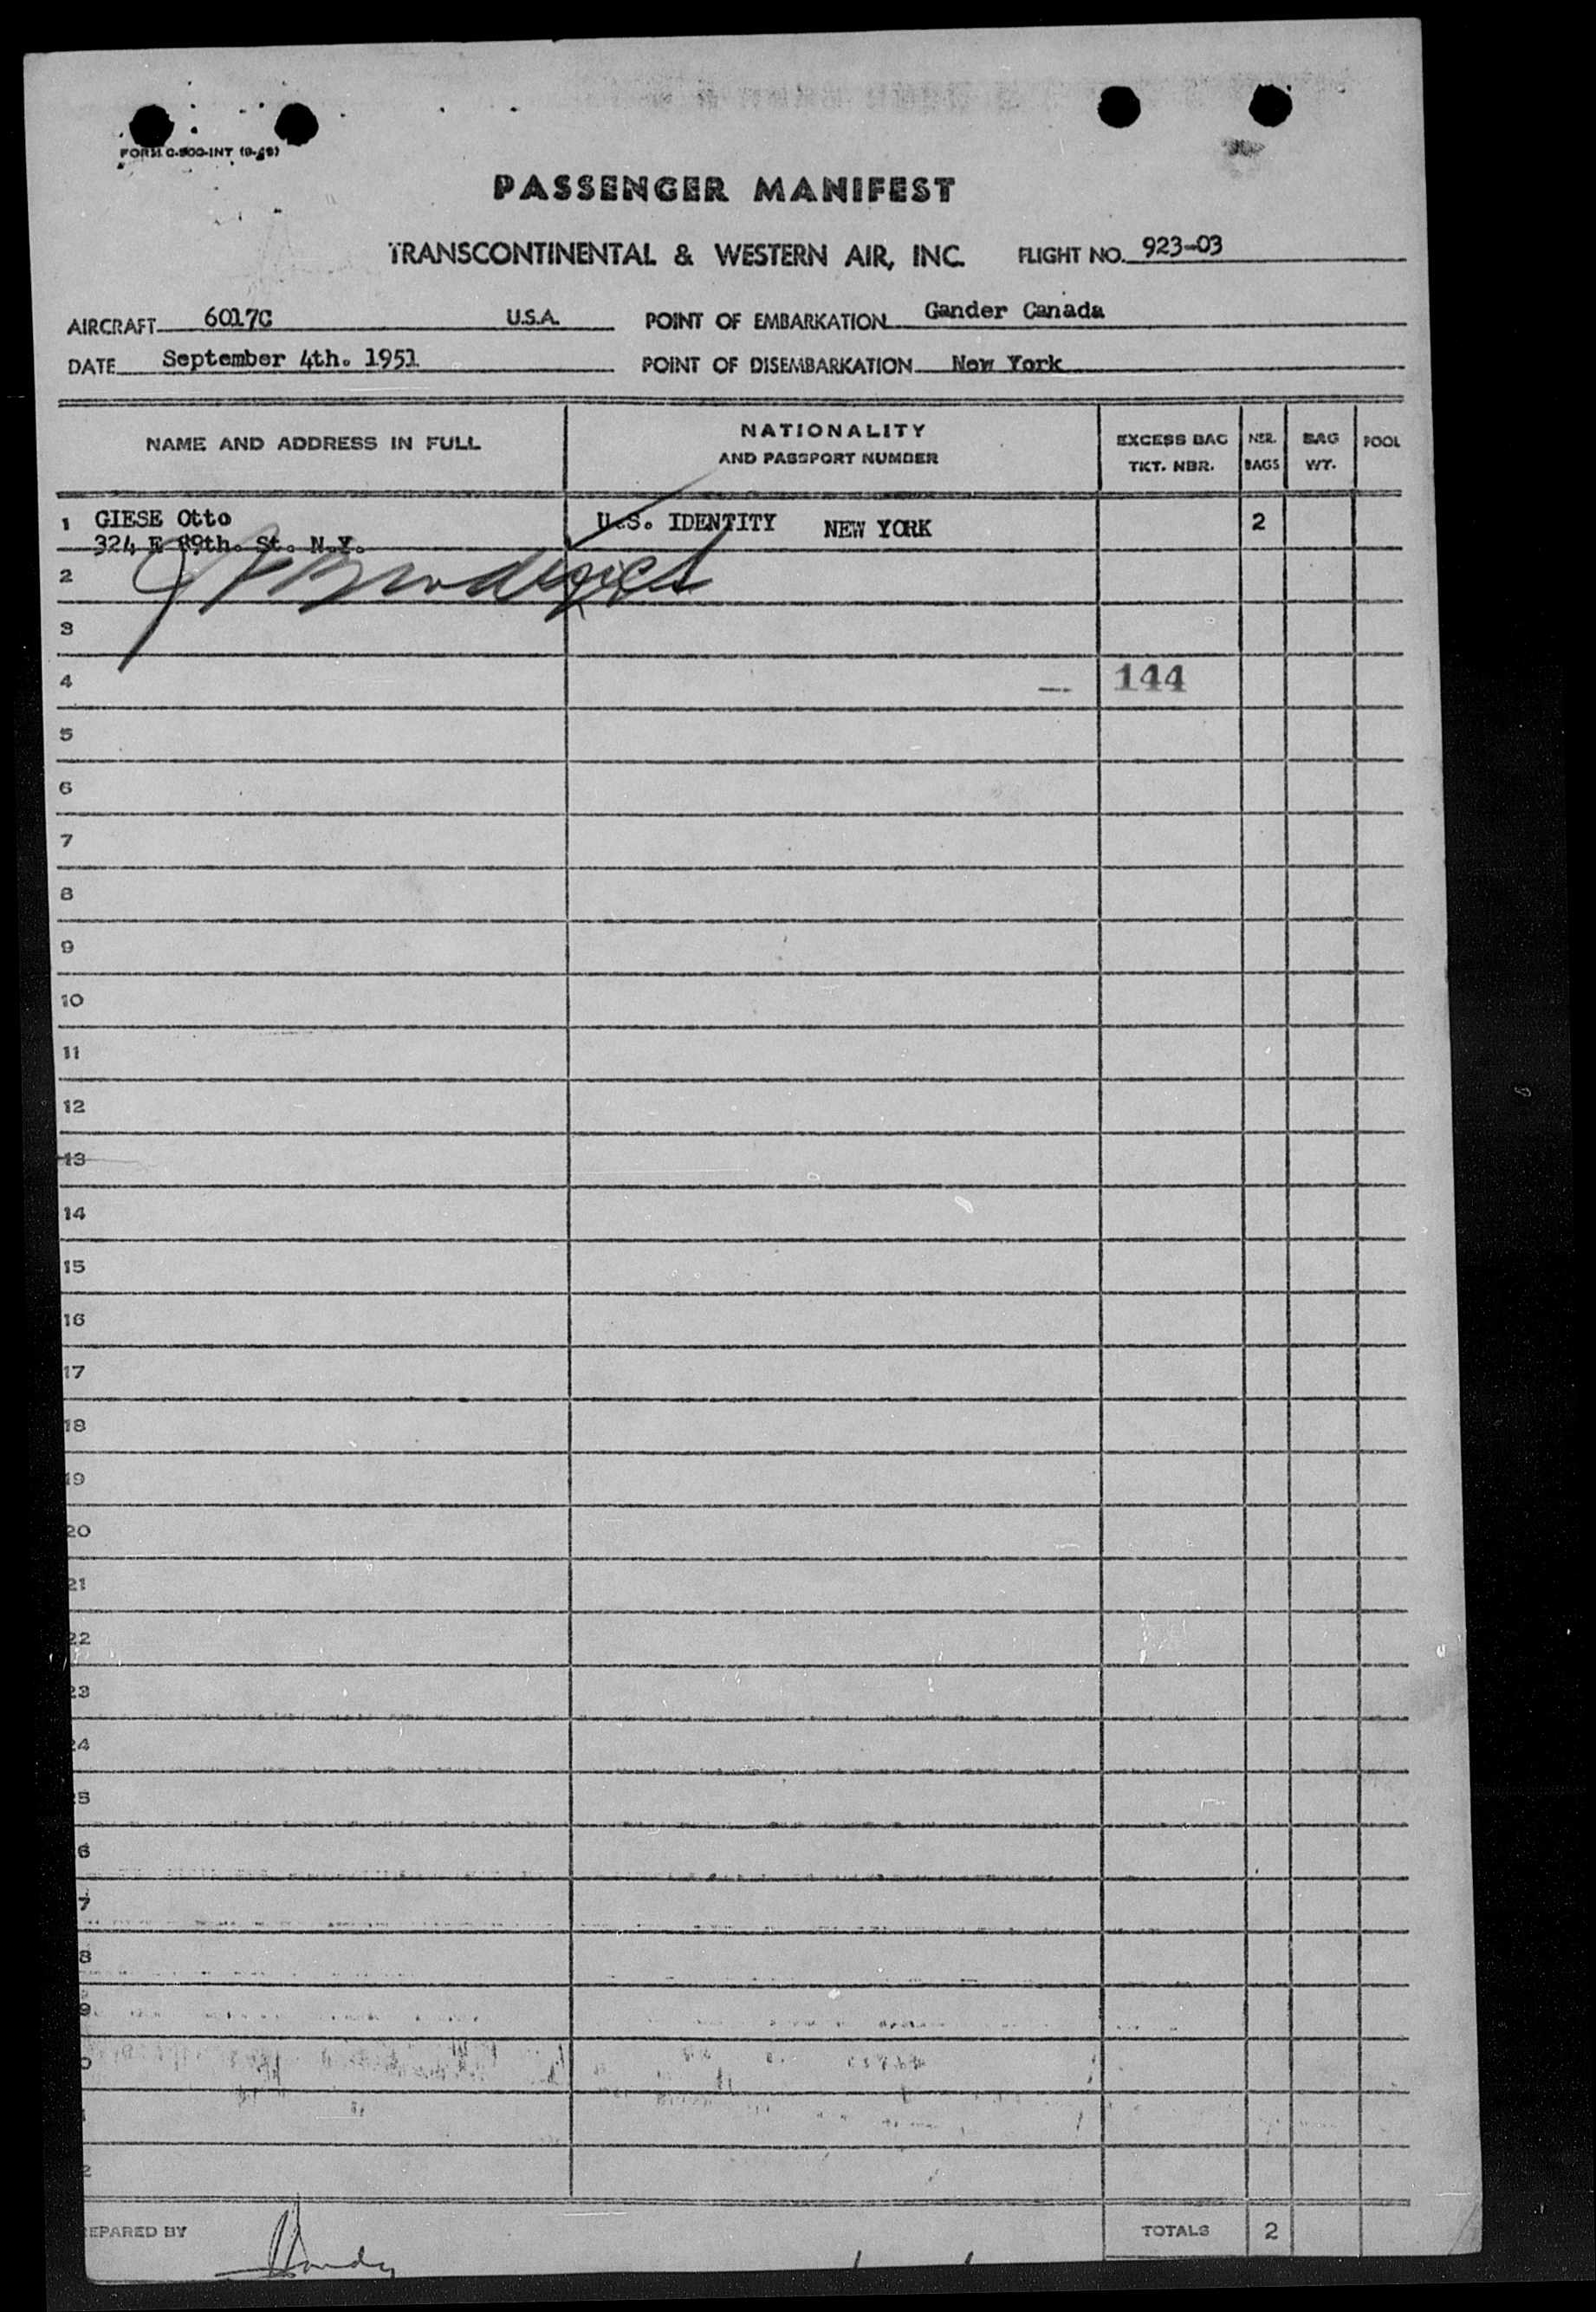 FORM C-800-INT
PASSENGER MANIFEST
TRANSCONTINENTAL & WESTERN AIR, INC. FLIGHT NO. 923-03
AIRCRAFT 6017C U.S.A. POINT OF EMBARKATION Gander Canada
DATE September 4th. 1951 POINT OF DISEMBARKATION New York
NAME AND ADDRESS IN FULL NATIONALITY AND PASSPORT NUMBER EXCESS BAG TKT. NBR. NBR. BAGS BAG WT. POOL
1 GIESE Otto U.S. IDENTITY NEW YORK 2
324 E 89th. St. N.Y.
2
3
4 144
5
6
7
8
9
10
11
12
13
14
15
16
17
18
19
20
21
22
23
24
5
6
7
8
9
0
2
EPARED BY TOTALS 2